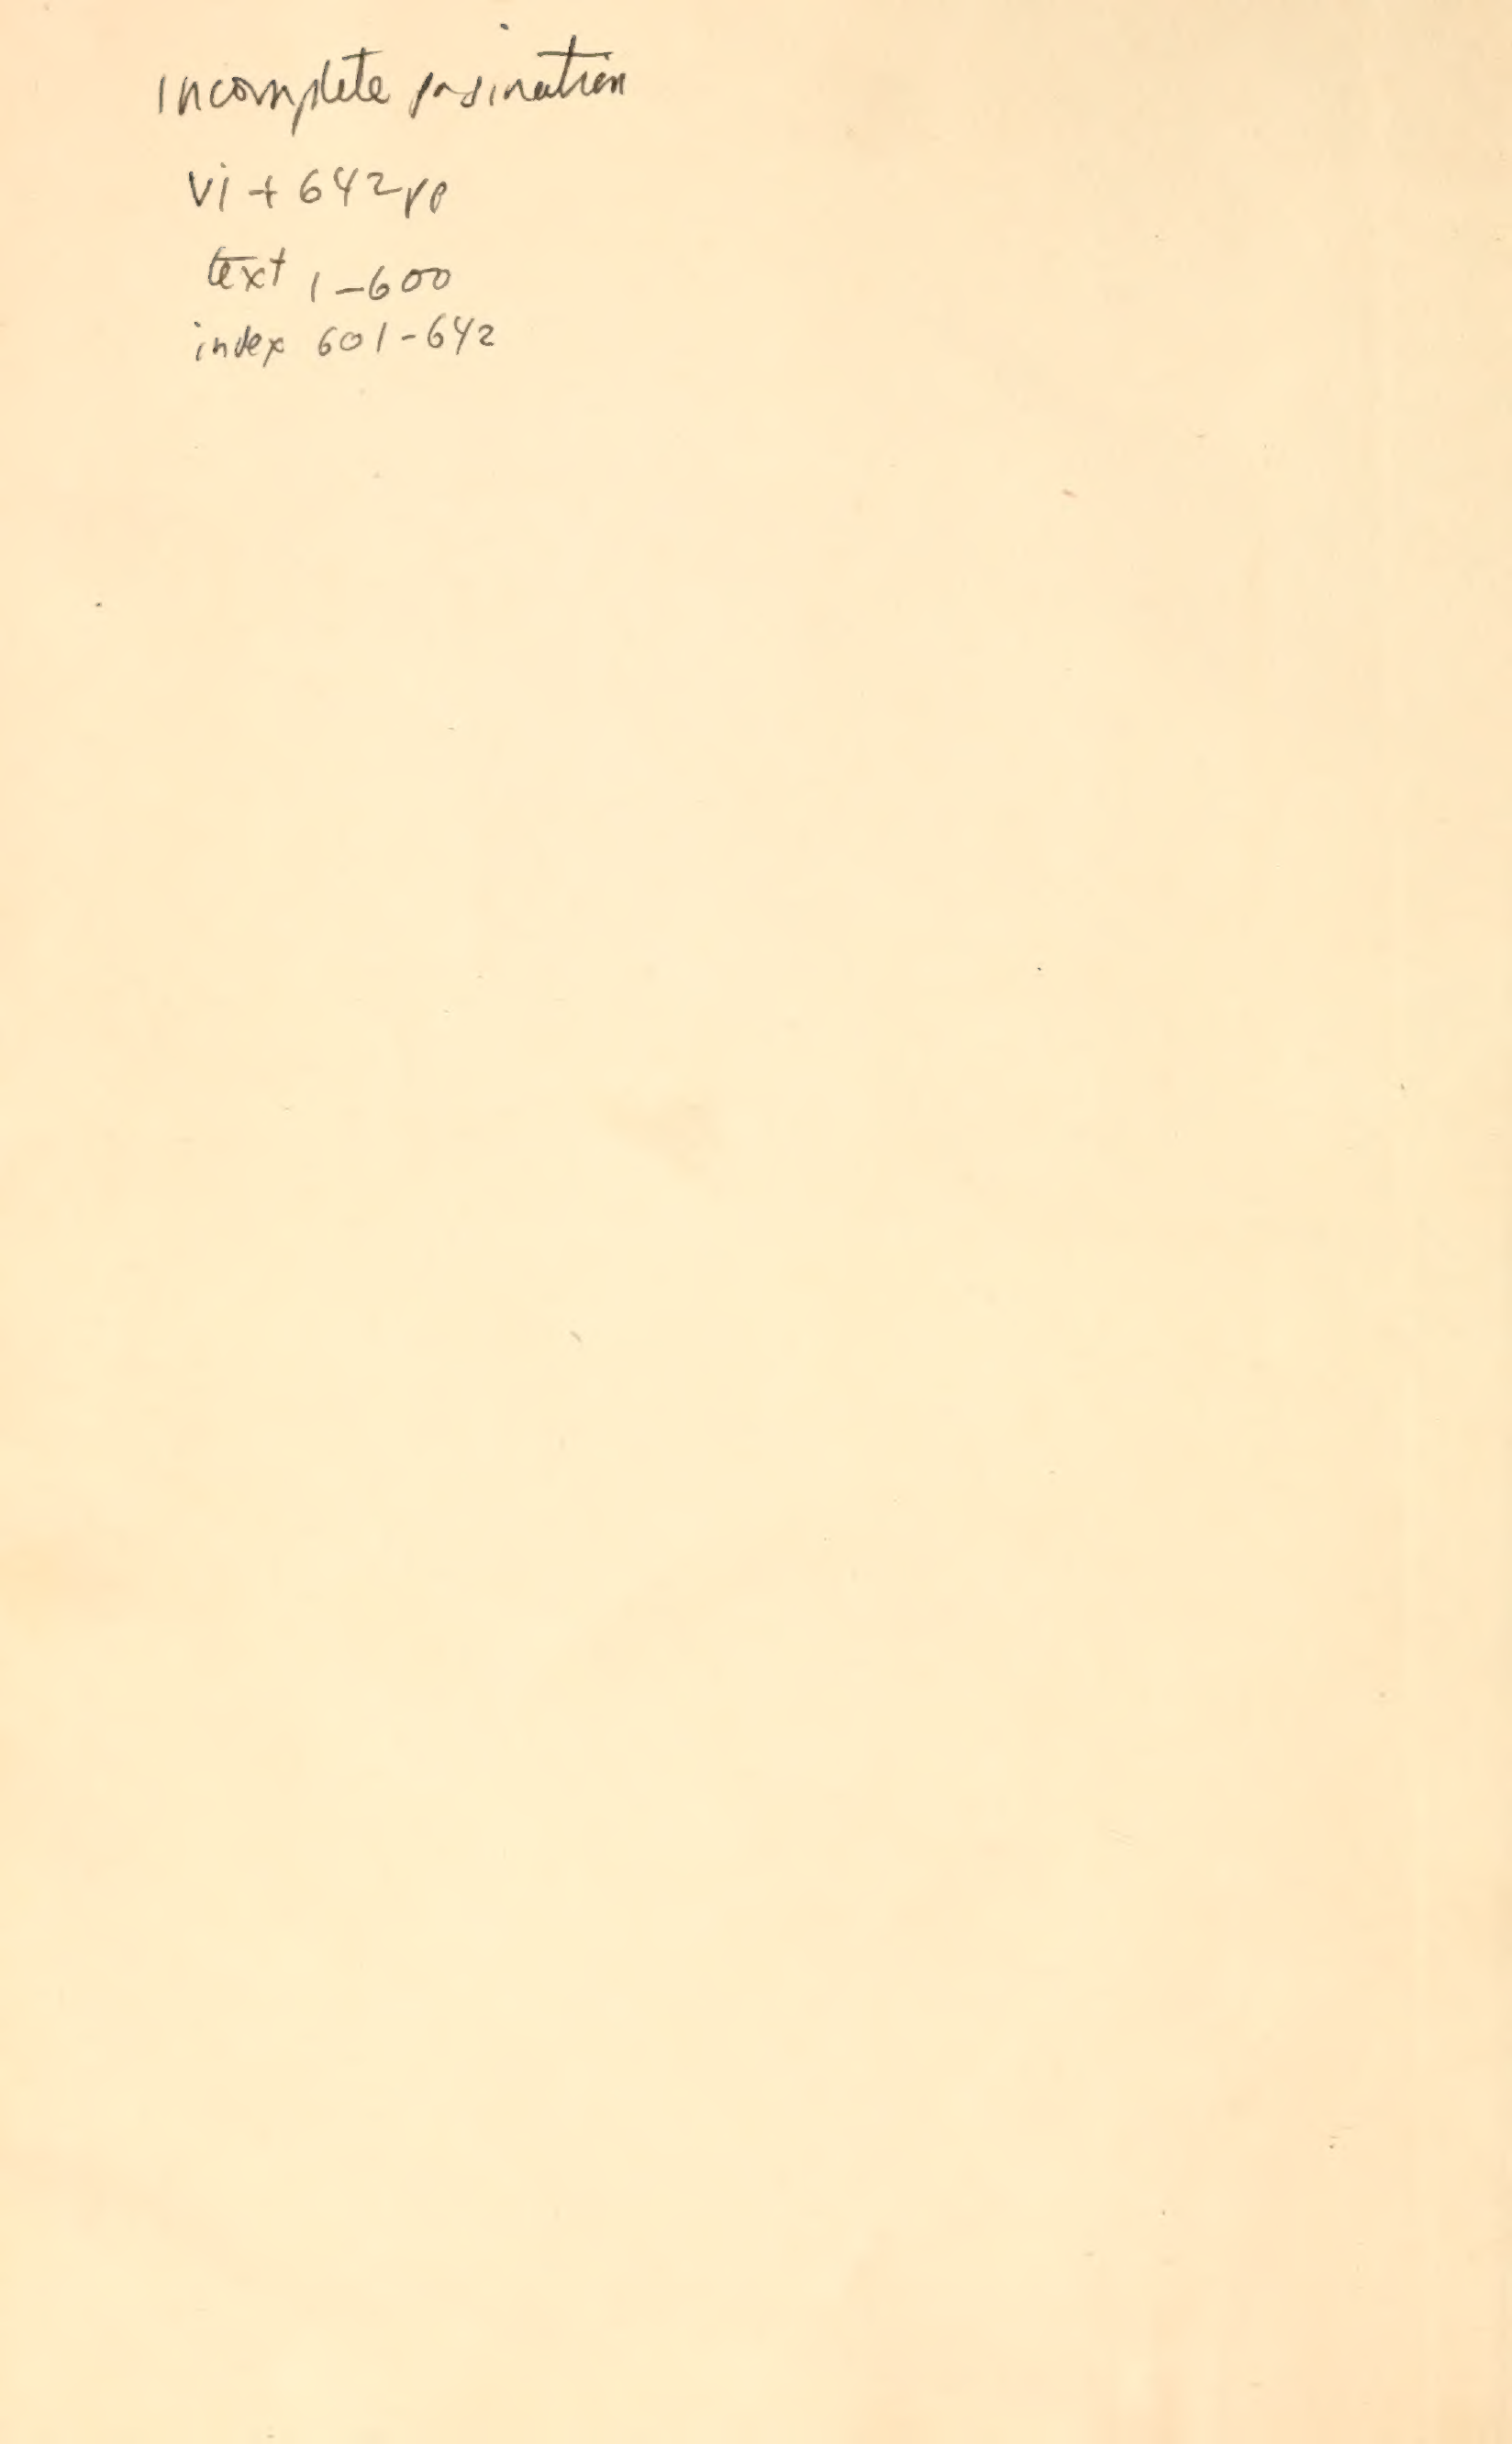 Incomplete pagination
vi + 642 pp
text 1-600
index 601-642